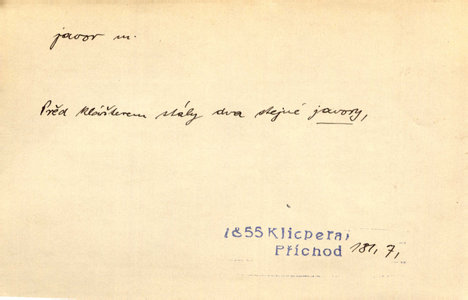 javor m.
Před klášterem stály dva stejné javory,
1855 Klicpera,
Příchod 181, 7,